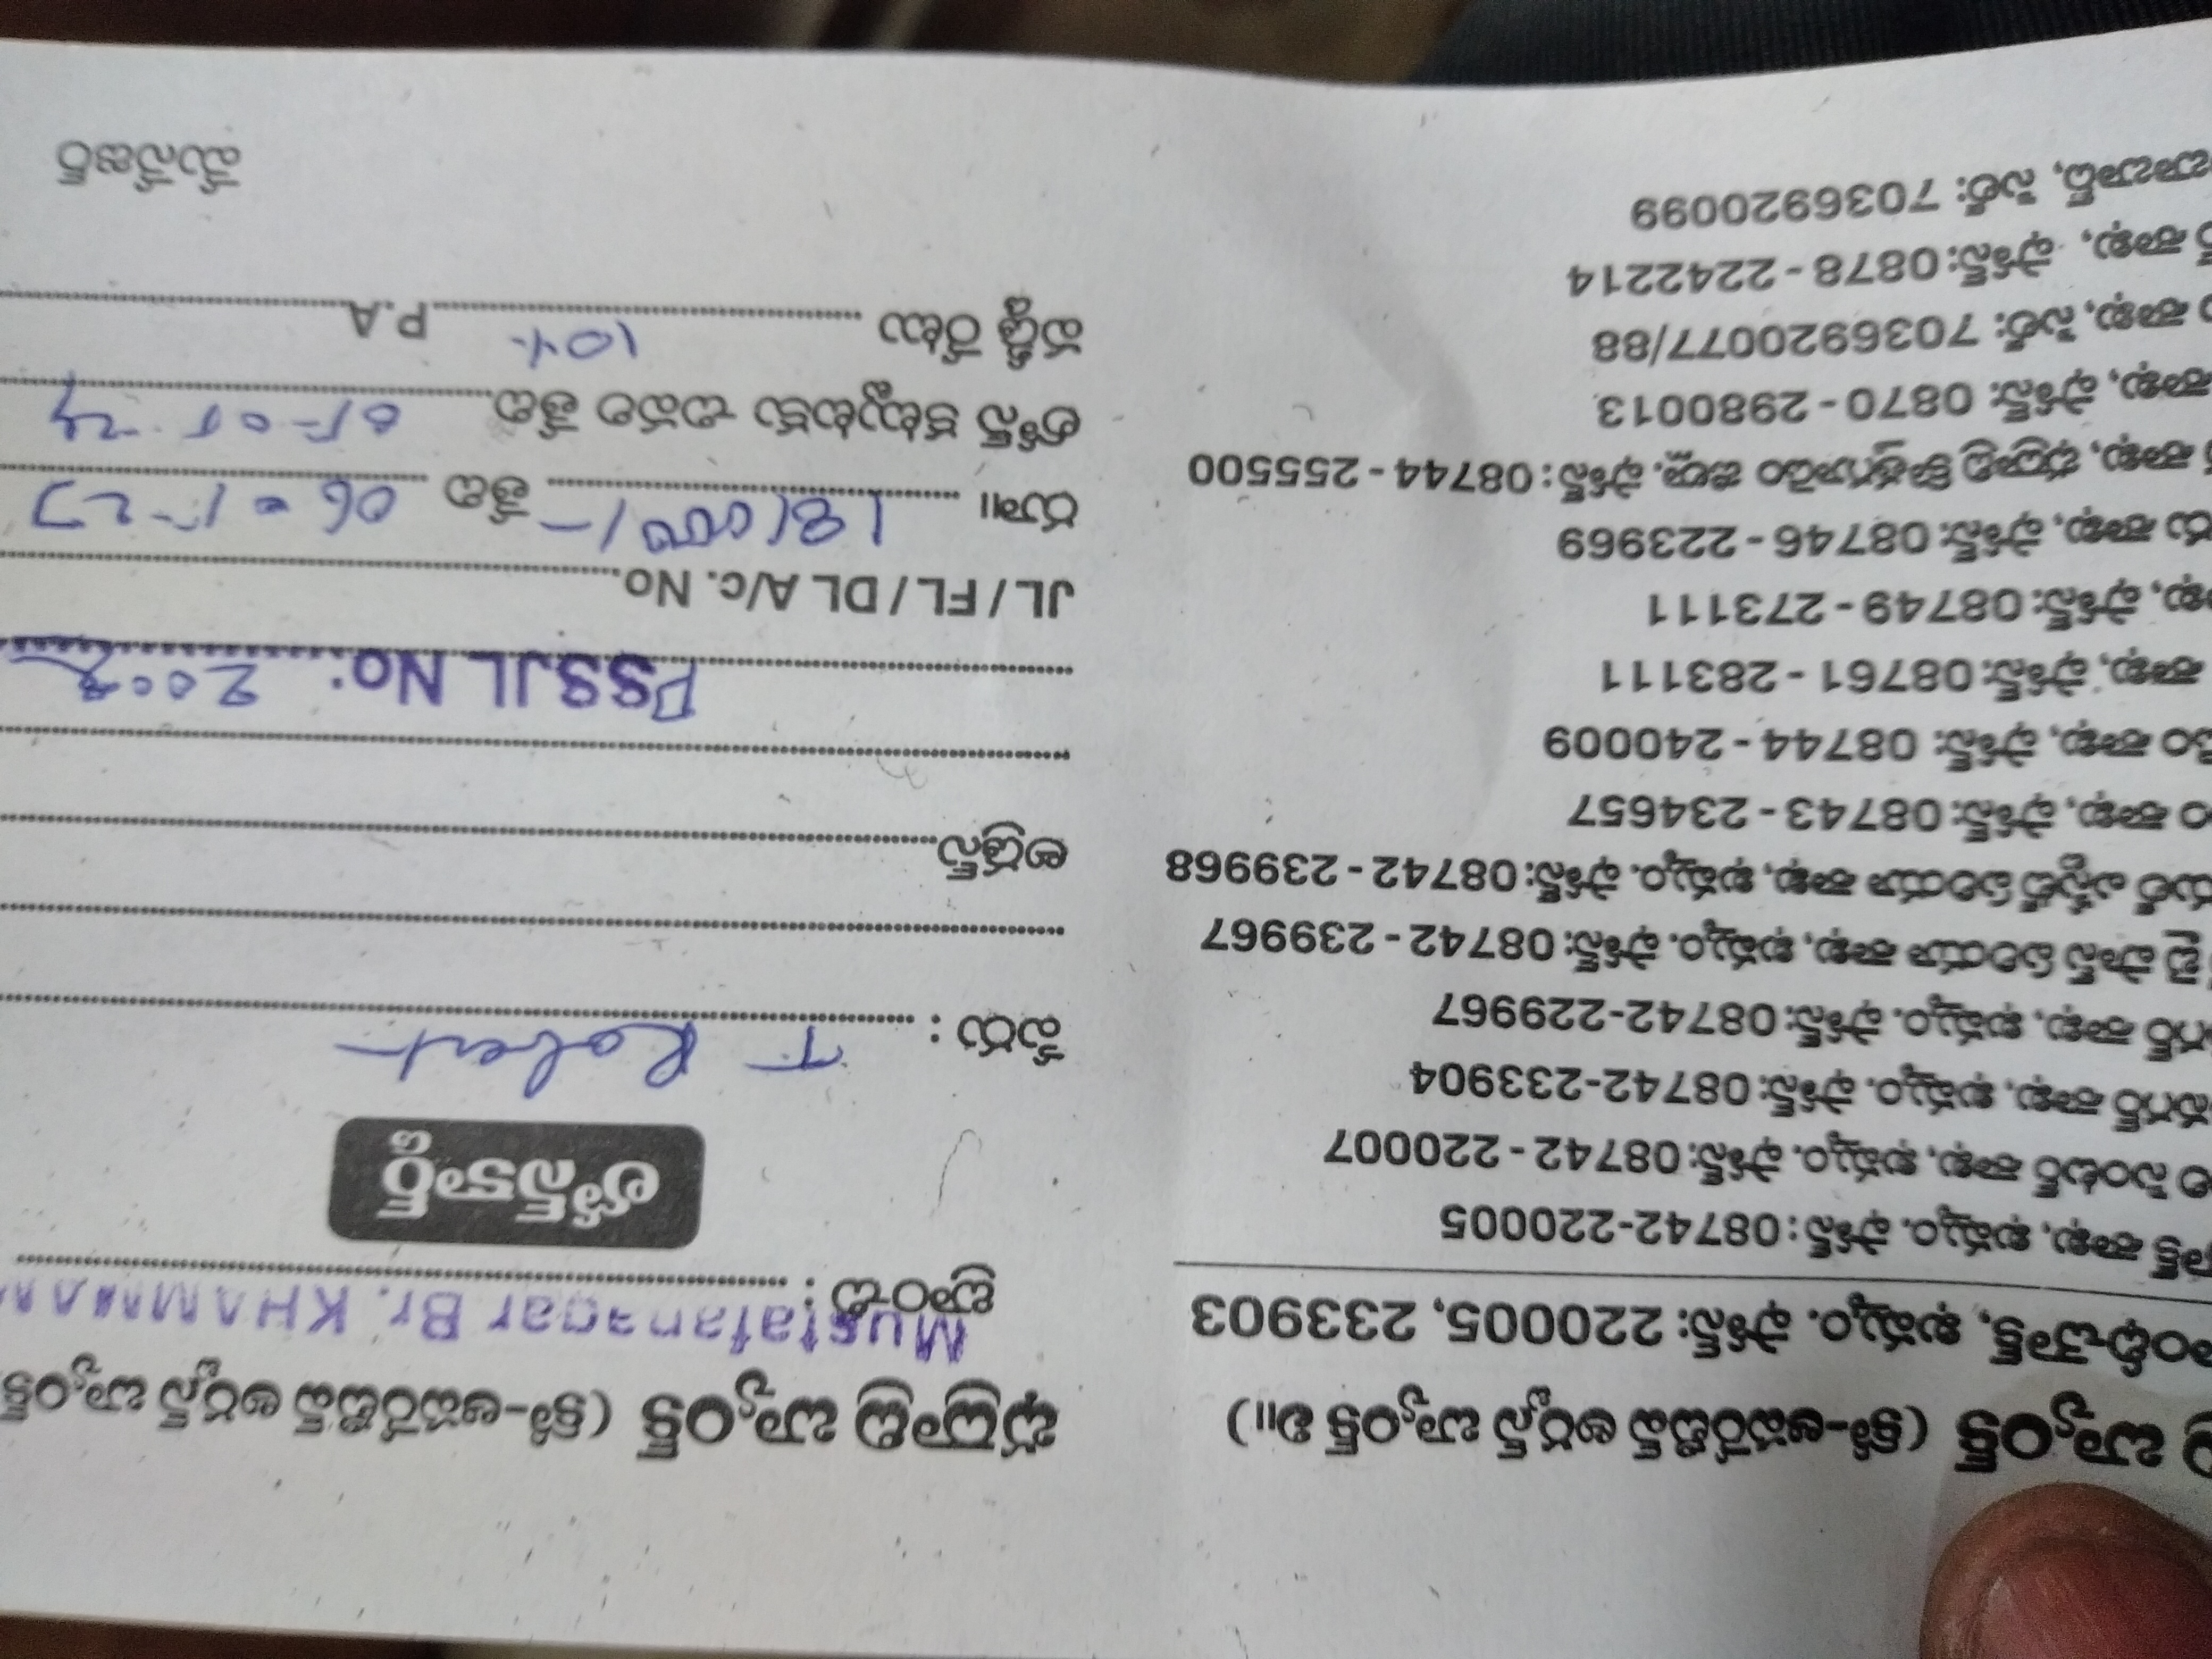 బ్యాంక్ (కో-ఆపరేటివ్ అర్బన్ బ్యాంక్ లి॥)
ఖమ్మం. ఫోన్: 220005, 233903
శాఖ, ఖమ్మం. ఫోన్ : 08742-220005
సెంటర్ శాఖ, ఖమ్మం. ఫోన్: 08742 - 220007
శాఖ, ఖమ్మం. ఫోన్: 08742-233904
శాఖ, ఖమ్మం. ఫోన్: 08742-229967
బై పాస్ ఏరియా శాఖ, ఖమ్మం. ఫోన్: 08742 - 239967
ఎస్టేట్ ఏరియా శాఖ, ఖమ్మం. ఫోన్: 08742 - 239968
శాఖ, ఫోన్: 08743 - 234657
శాఖ, ఫోన్: 08744 - 240009
శాఖ, ఫోన్: 08761 - 283111
ఫోన్: 08749 - 273111
శాఖ, ఫోన్: 08746 - 223969
శాఖ, భద్రాద్రి కొత్తగూడెం జిల్లా. ఫోన్ : 08744 - 255500
శాఖ, ఫోన్: 0870 - 2980013
శాఖ, సెల్: 7036920077/88
శాఖ, ఫోన్: 0878 - 2242214
సెల్: 7036920099
భద్రాద్రి బ్యాంక్ (కో-ఆపరేటివ్ అర్బన్ బ్యాంక్
Mustafanagar Br. KHAMMAM
బ్రాంచి :
లోన్‌కార్డ్
పేరు : T Robert
అడ్రస్
PSSJL No: 2002
JL / FL / DL A/c. No.
రూ॥ 18,000/- తేది 06-01-23
లోన్ కట్టుటకు చివరి తేది 05-01-24
వడ్డీ రేటు 10% P.A.
మేనేజర్